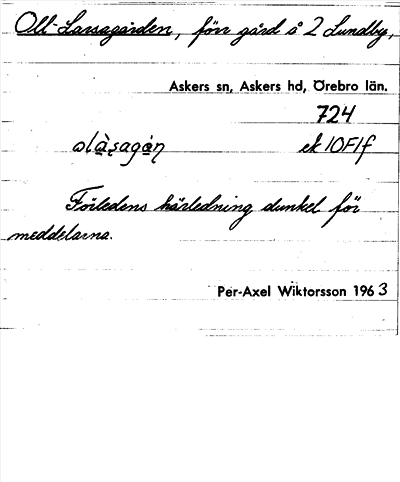 Oll-Larsagården, förr gård å 2 Lundby,
Askers sn, Askers hd, Örebro län.
724
ek 10F1f
Förledens härledning dunkel för
meddelarna.
Per-Axel Wiktorsson 1963